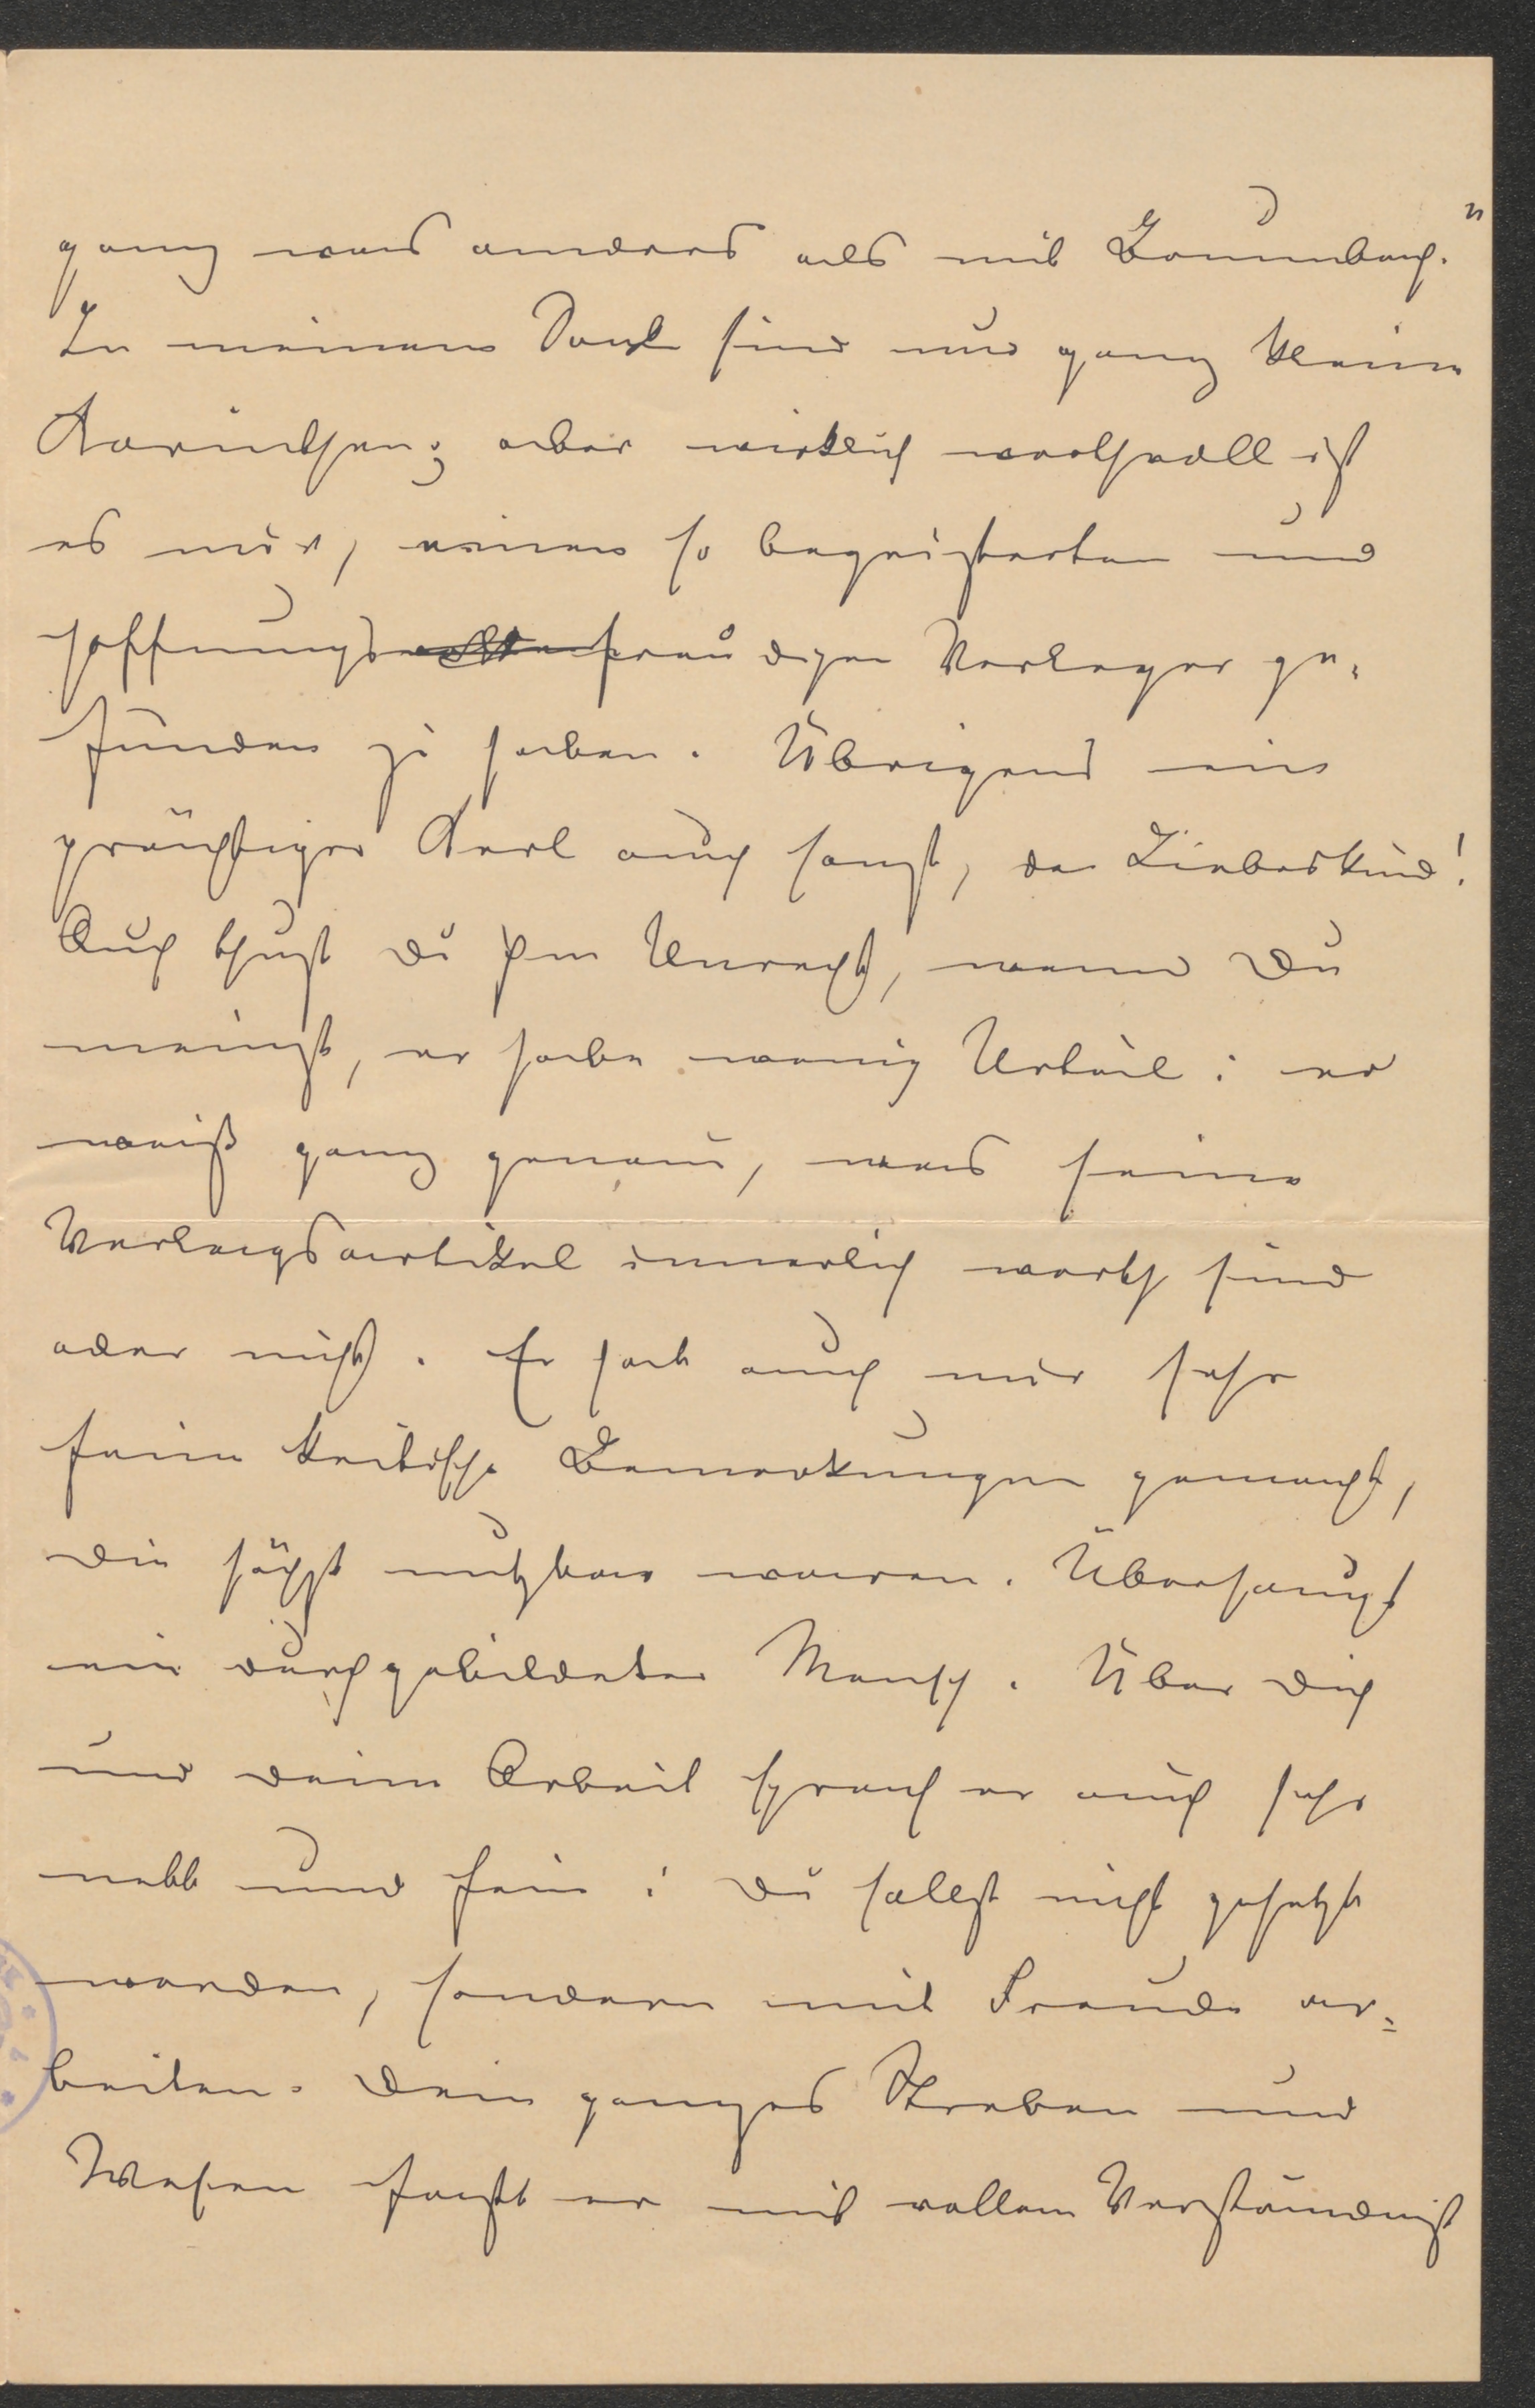 ganz was anders als mit Baumbach."
In meinem Sack sind nur ganz kleine
Korinthen; aber wirklich werthvoll ist
es mir, einen so begeisterten und
hoffnungsfreudigen Verleger ge-
funden zu haben. Übrigens ein
prächtiger Kerl auch sonst, der Liebeskind!
Auch thust Du ihm Unrecht, wenn Du
meinst, er habe wenig Urteil: er
weiß ganz genau, was seine
Verlagsartikel innerlich werth sind
oder nicht. Er hat auch mir sehr
feine kritische Bemerkungen gemacht,
die höchst nutzbar waren. Überhaupt
ein durchgebildeter Mensch. Über dich
und deine Arbeit sprach er auch sehr
nett und fein: du sollst nicht gehetzt
werden, sondern mit Freude ar-
beiten. Dein ganzes Streben und
Wesen faßt er mit vollem Verständniß